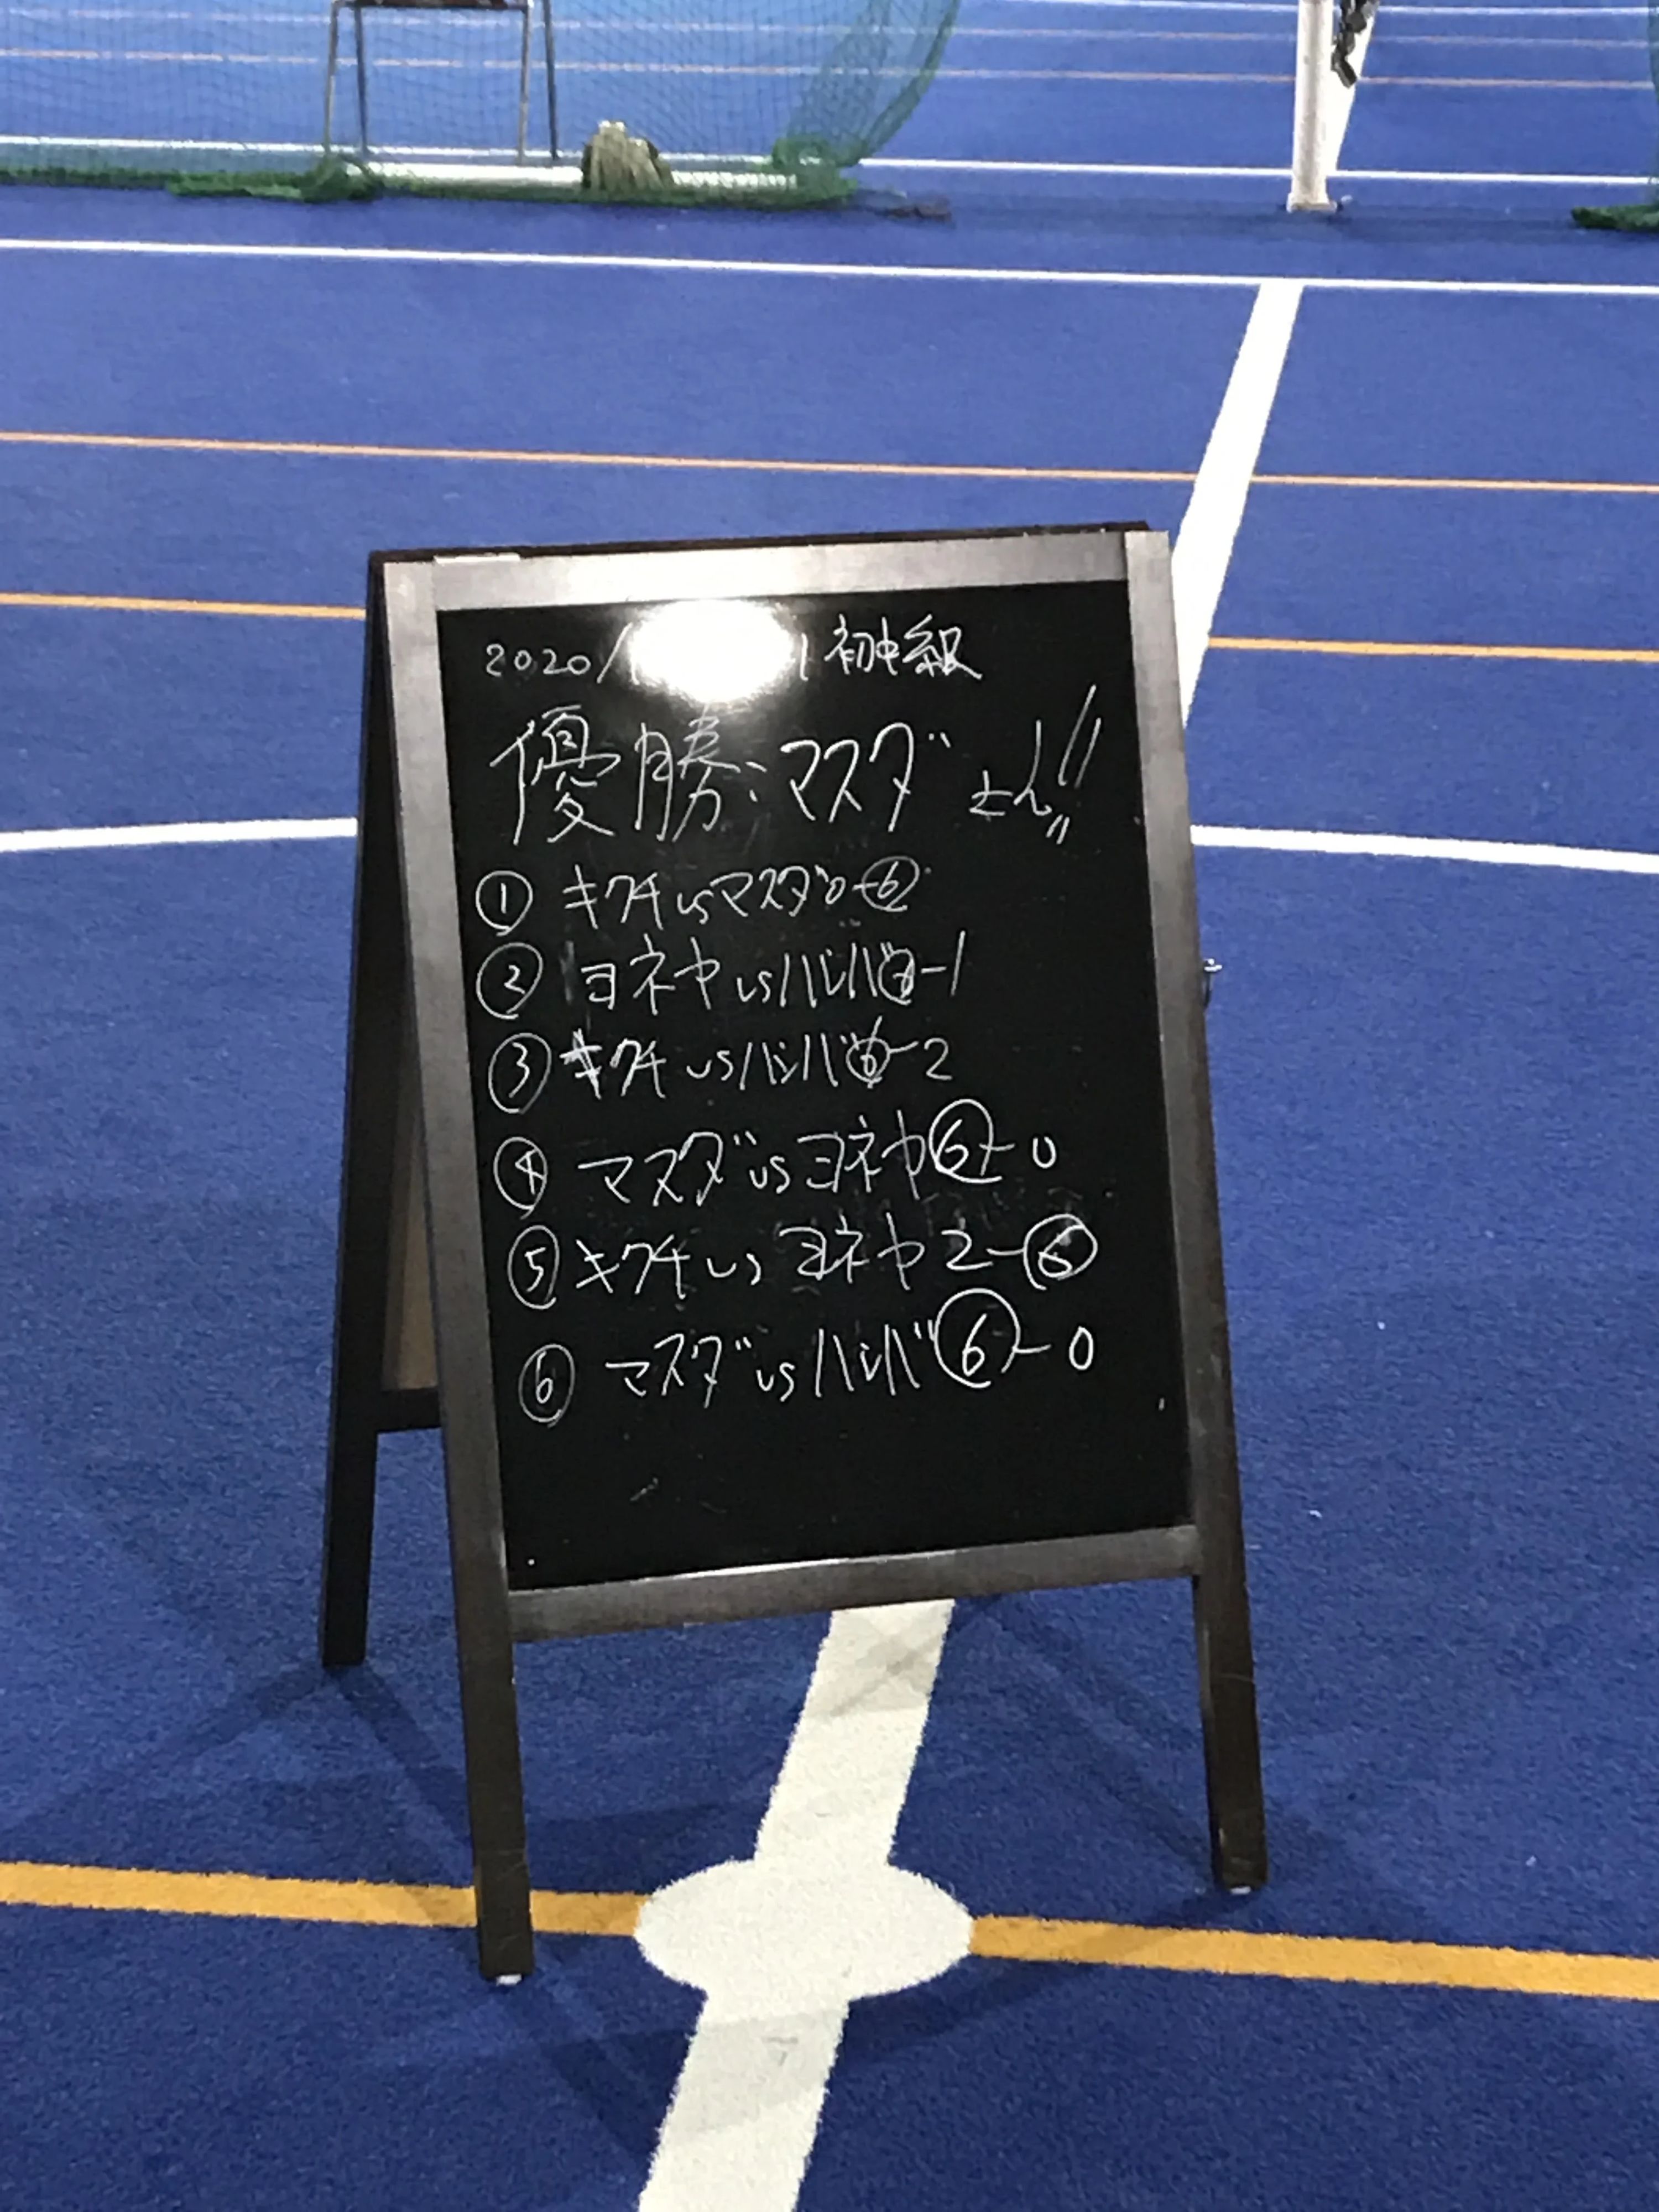 2020/1 1 初中組
優勝:マスダさん!!
① キクチvsマスダ0-⑥
② ヨネヤvsハンバ -1
③ キクチvsハンバ⑥-2
④ マスダvsヨネヤ⑥-0
⑤ キクチvsヨネヤ2-⑥
⑥ マスダvsハンバ⑥-0